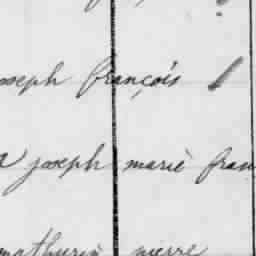 joseph françois
joseph mariè fran
mathurin pierre